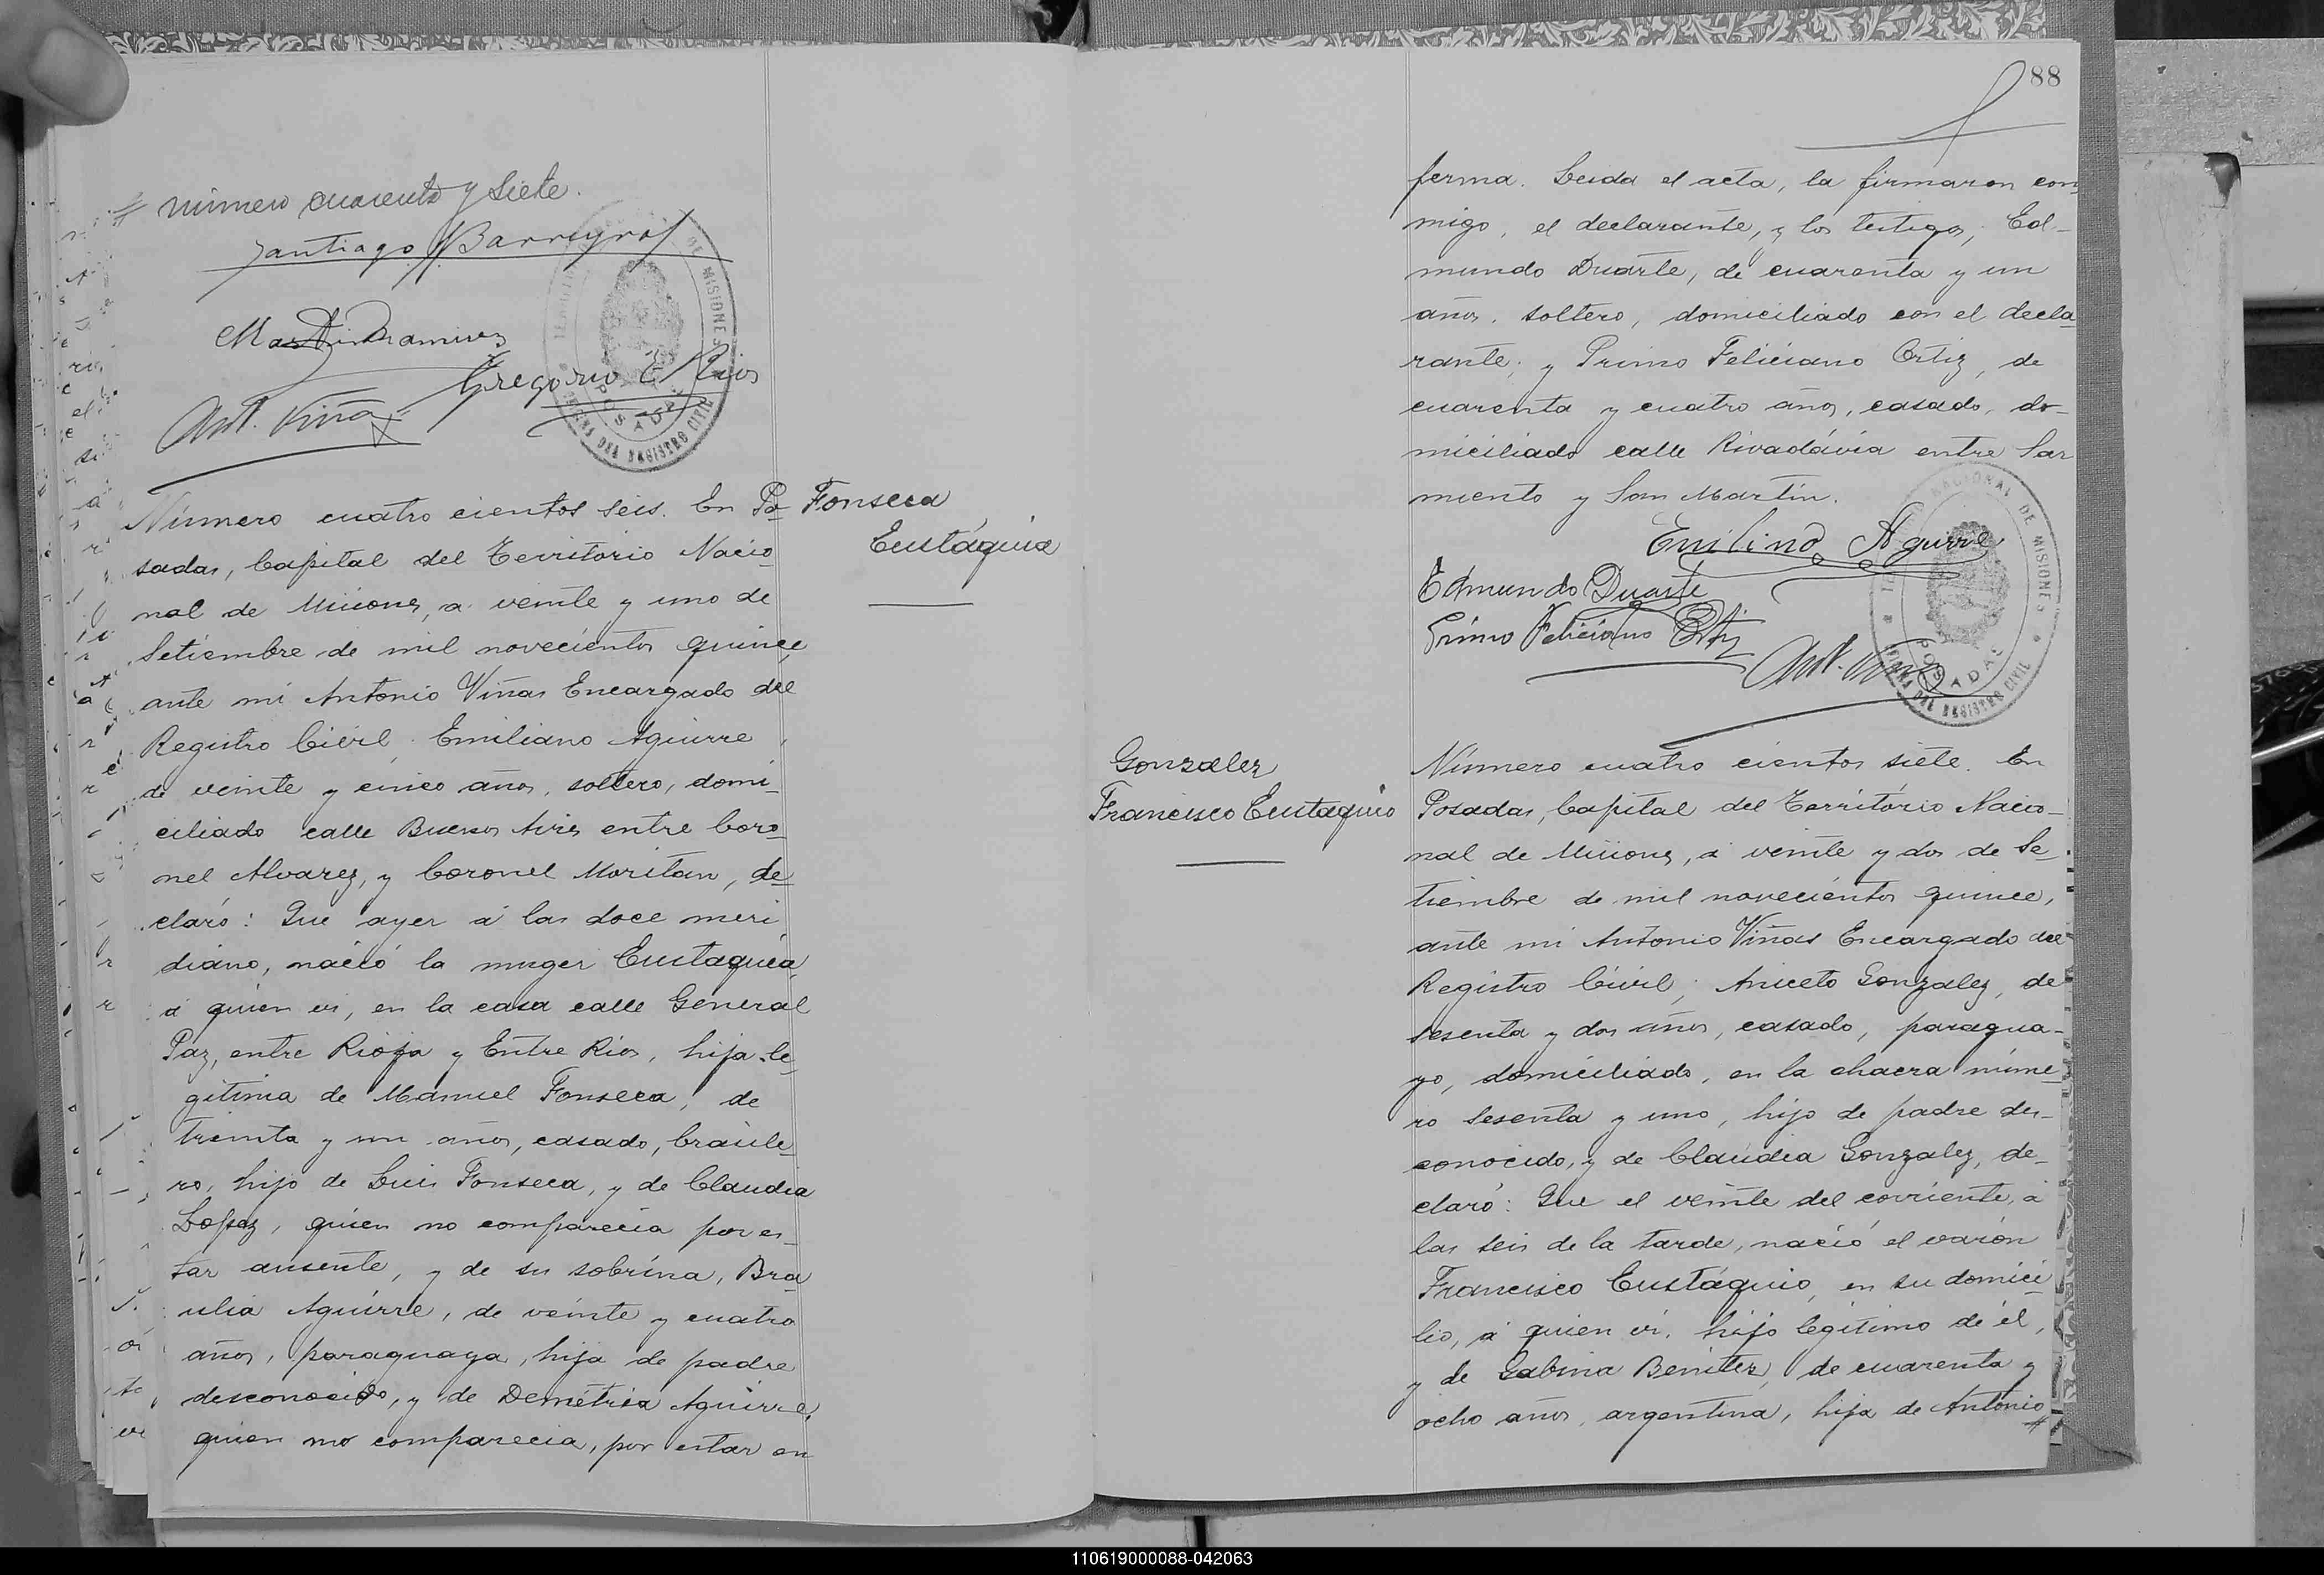 # número cuarenta y siete.
Santiago Barreyro
Martin Ramirez
Gregorio E Rios
Ant. Viñas
Número cuatro cientos seis. En Po-
sadas, Capital del Territorio Nacio-
nal de Misiones, a veinte y uno de
Setiembre de mil novecientos quince,
ante mi Antonio Viñas Encargado del
Registro Civil, Emiliano Aguirre,
de veinte y cinco años, soltero, domi-
ciliado calle Buenos Aires entre Coro-
nel Alvarez, y Coronel Moritan, de-
claró: Que ayer á las doce meri
diano, nació la muger Eustaquia,
á quien vi, en la casa calle General
Paz, entre Rioja y Entre Rios, hija le-
gitima de Manuel Fonseca, de
treinta y un años, casado, brasile
ro, hijo de Luis Fonseca, y de Claudia
Lopez, quien no comparecia por es-
tar ausente, y de su sobrina, Bra-
ulia Aguirre, de veinte y cuatro
años, paraguaya, hija de padre
desconocido, y de Demétria Aguirre,
quien no comparecia, por estar en
Fonseca
Eustáquia
88
ferma. Leida el acta, la firmaron con
migo, el declarante, y los testigos, Ed-
mundo Duarte, de cuarenta y un
años, soltero, domiciliado con el decla
rante; y Primo Feliciano Ortiz, de
cuarenta y cuatro años, casado, do-
miciliado calle Rivadávia entre Sar
miento y San Martin.
Emiliano Aguirre
Edmundo Duarte
Primo Feliciano Ortiz
Ant. Viñas
NACIONAL DE MISIONES
POSADAS
OFICINA DEL REGISTRO CIVIL
Gonzalez
Francisco Eustaquio
Número cuatro cientos siete. En
Posadas, Capital del Território Nacio-
nal de Misiones, á veinte y dos de Se-
tiembre de mil novecientos quince,
ante mi Antonio Viñas Encargado del
Registro Civil; Aniceto Gonzalez, de
sesenta y dos años, casado, paragua-
yo, domiciliado, en la chacra núme-
ro sesenta y uno, hijo de padre des-
conocido, y de Claudia Gonzalez, de-
claró: Que el veinte del corriente, á
las seis de la tarde, nació el varón
Francisco Eustáquio, en su domici
lio, á quien vi, hijo legítimo de él,
y de Gabina Benitez, de cuarenta y
ocho años, argentina, hija de Antonio
#
110619000088-042063